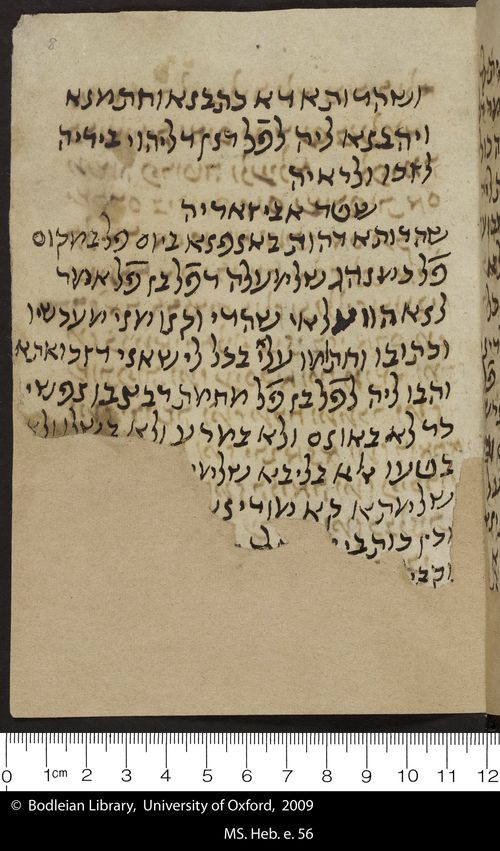 8
ושהדותא דא כתבנא וחתמנא
ויהבנא ליה לפל דנן דליהוי בידיה
לזכו ולראיה
שטר אביזאריה
שהדותא דהות באנפנא ביום פל במקום
פל כמנהג שלמעלה דפל בן פל אמר
לנא הוו עלאי שהדי וקנו מני מעכשיו
וכתובו וחתמו עלי בכל לישאני דזכואתא
והבו ליה לפל בן פל מחמת דצבבו נפשי
דלא באונס ולא במדע ולא בשלו ולא
בטעו אלא בליבא שלמי
שלמתא קא מודינ
וכין כותבי
וקבי
0 1cm 2 3 4 5 6 7 8 9 10 11 12
© Bodleian Library, University of Oxford, 2009
MS. Heb. e. 56